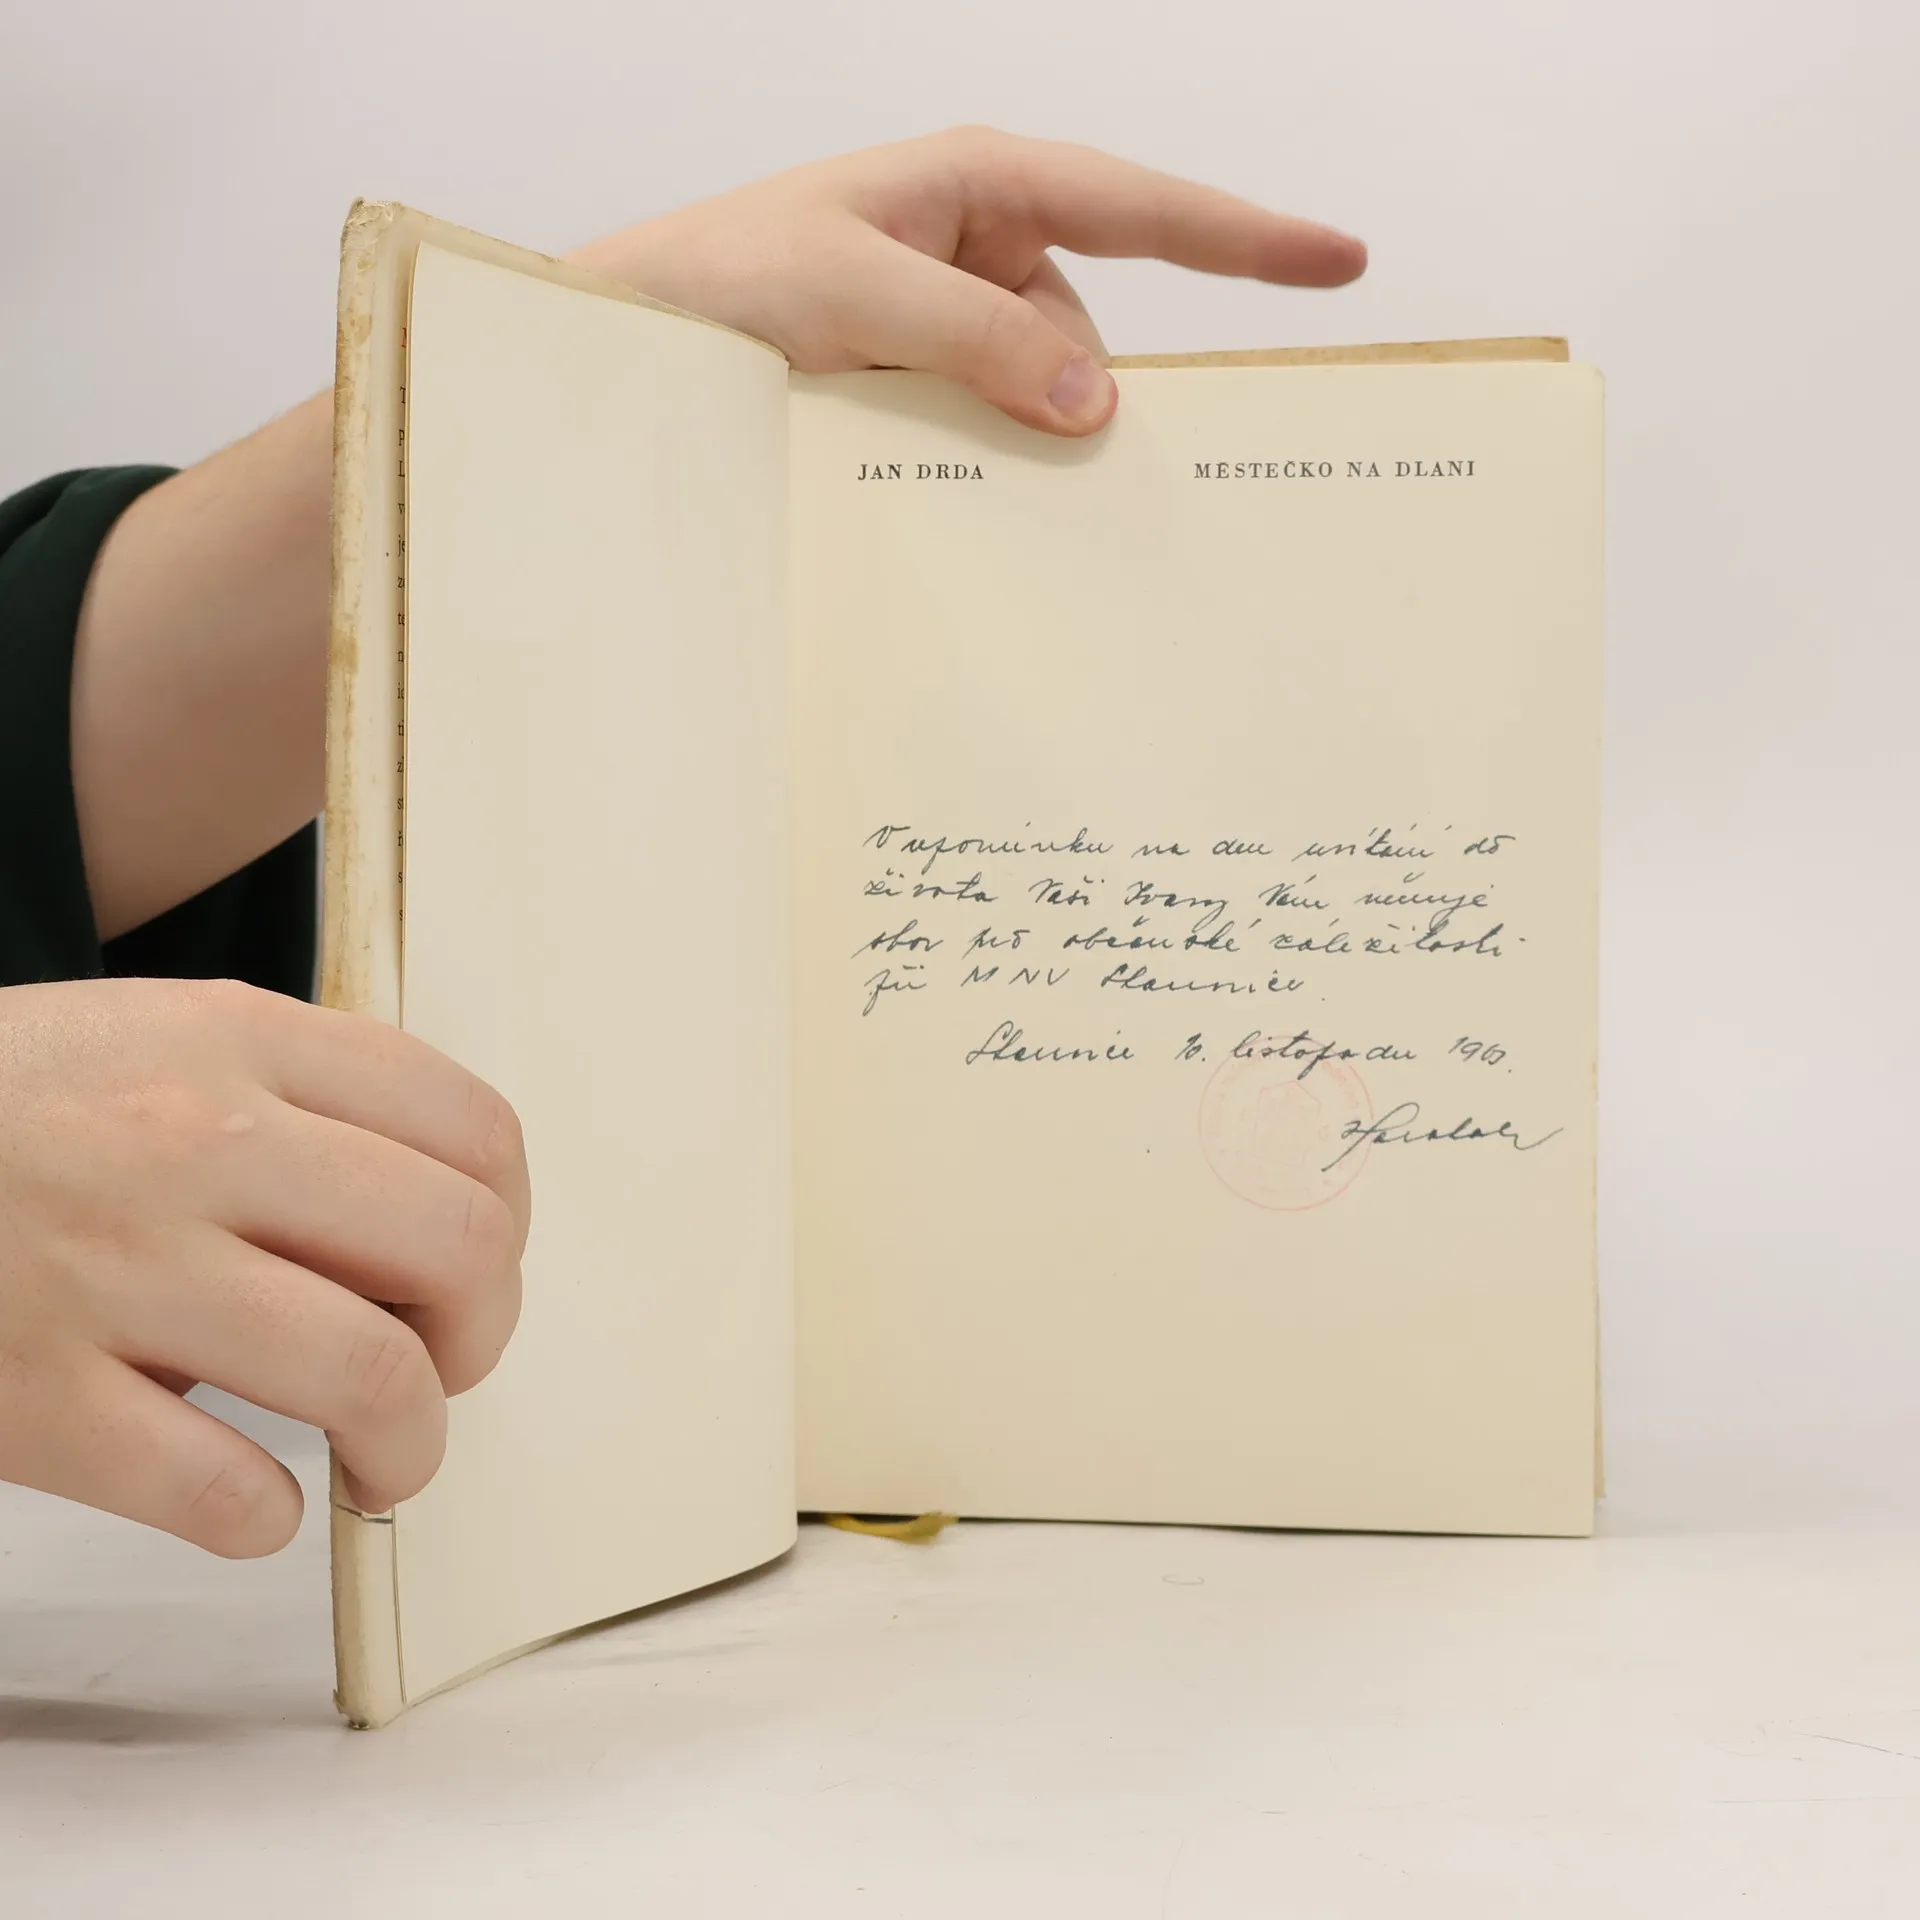 JAN DRDA MĚSTEČKO NA DLANI
V upomínku na den uvítání do
života Vaší Ivany Vám věnuje
sbor pro občanské záležitosti
při MNV Slavnice.
Slavnice 10. listopadu 196